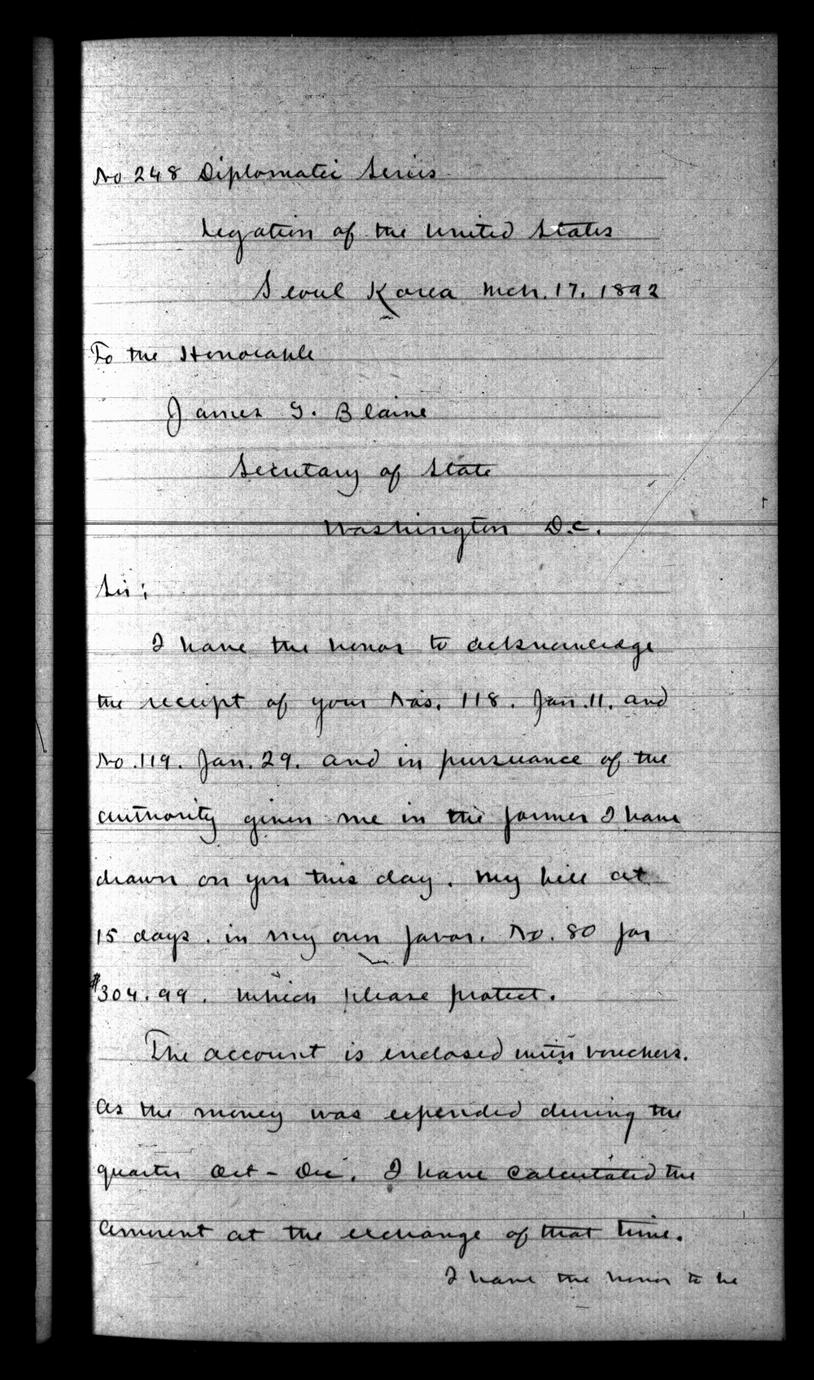 No 248 Diplomatic Series
Legation of the United States
Seoul Korea Mch. 17. 1892
To the Honorable
James G. Blaine
Secretary of State
Washington D.C.
Sir;
I have the honor to acknowledge
the receipt of your Nos. 118. Jan. 11. and
No. 119. Jan. 29. and in pursuance of the
authority given me in the former I have
drawn on you this day. My bill at
15 days. in my own favor. No. 80 for
$304.99. which please protect.
The account is enclosed with vouchers.
As the money was expended during the
quarter Oct - Dec. I have calculated the
amount at the exchange of that time.
I have the honor to be